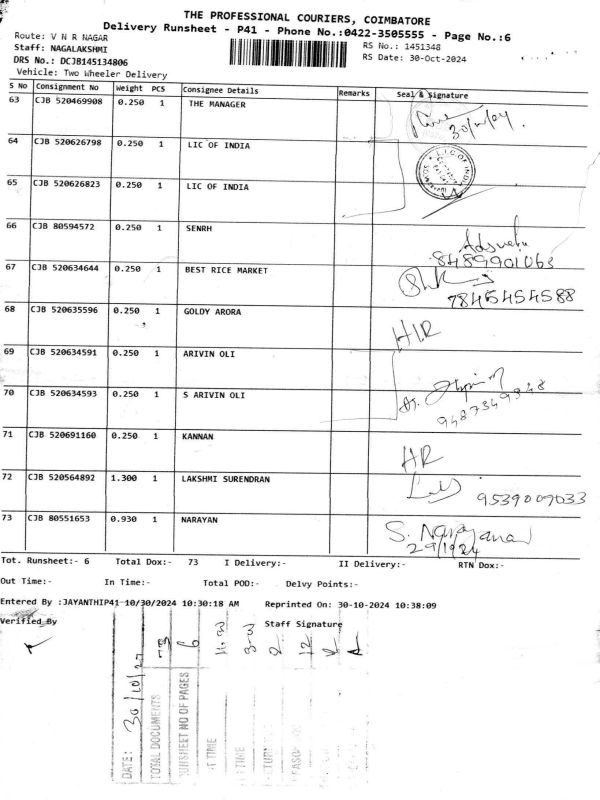 THE PROFESSIONAL COURIERS, COIMBATORE
Delivery Runsheet - P41 - Phone No.:0422-3505555 - Page No.:6
Route: V N R NAGAR
Staff: NAGALAKSHMI
DRS No.: DCJB145134806
Vehicle: Two Wheeler Delivery
RS No.: 1451348
RS Date: 30-Oct-2024
S No Consignment No Weight PCS Consignee Details Remarks Seal & Signature
63 CJB 520469908 0.250 1 THE MANAGER
64 CJB 520626798 0.250 1 LIC OF INDIA
65 CJB 520626823 0.250 1 LIC OF INDIA
66 CJB 80594572 0.250 1 SENRH
8489901063
67 CJB 520634644 0.250 1 BEST RICE MARKET
7845454588
68 CJB 520635596 0.250 1 GOLDY ARORA
69 CJB 520634591 0.250 1 ARIVIN OLI
70 CJB 520634593 0.250 1 S ARIVIN OLI
9487349348
71 CJB 520691160 0.250 1 KANNAN
72 CJB 520564892 1.300 1 LAKSHMI SURENDRAN
9539009033
73 CJB 80551653 0.930 1 NARAYAN
S. Narayanan
Tot. Runsheet:- 6 Total Dox:- 73 I Delivery:- II Delivery:- RTN Dox:-
Out Time:- In Time:- Total POD:- Delvy Points:-
Entered By :JAYANTHIP41 10/30/2024 10:30:18 AM Reprinted On: 30-10-2024 10:38:09
Verified By Staff Signature
DATE: 30/10/24
TOTAL DOCUMENTS 73
RUNSHEET NO OF PAGES 6